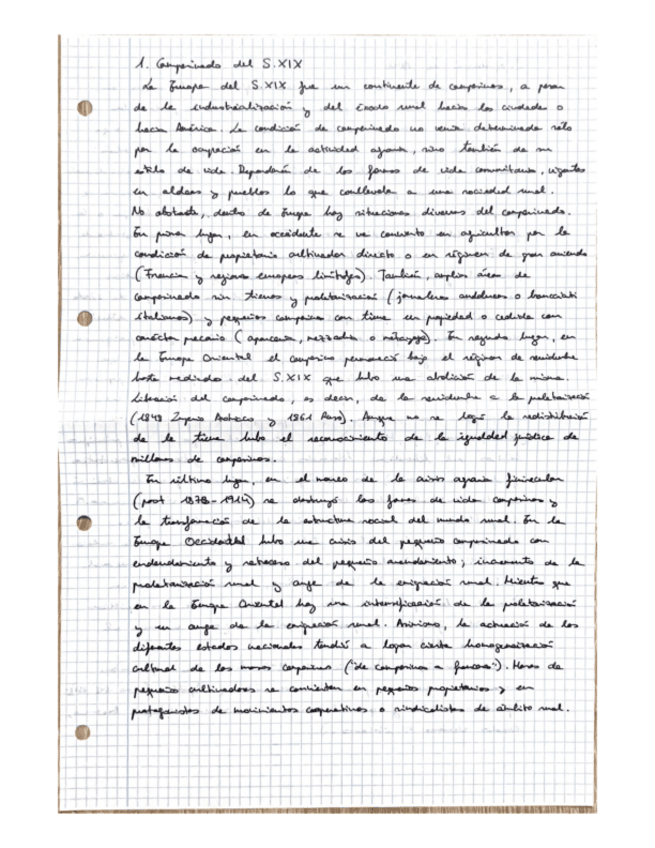 1. Campesinado del S.XIX
La Europa del S.XIX fue un continente de campesinos, a pesar
de la industrialización y del éxodo rural hacia las ciudades o
hacia América. La condición de campesinado no venía determinada solo
por la ocupación en la actividad agraria, sino también de su
estilo de vida. Dependerán de las formas de vida comunitaria, vigentes
en aldeas y pueblos lo que conllevaba a una sociedad rural.
No obstante, dentro de Europa hay situaciones diversas del campesinado.
En primer lugar, en occidente se ve convierto en agricultor por la
condición de propietario cultivador directo o en régimen de gran arriendo
(Francia y regiones europeas limítrofes). También, amplias áreas de
campesinado sin tierras y proletarización (jornaleros andaluces o braccianti
italianos) y pequeños campesinos con tierra en propiedad o cedida con
carácter precario (aparcería, mezzadria o métayage). En segundo lugar, en
la Europa Oriental el campesino permaneció bajo el régimen de servidumbre
hasta mediados del S.XIX que hubo una abolición de la misma.
Liberación del campesinado, es decir, de la servidumbre a la proletarización
(1848 Imperio Austriaco y 1861 Rusia). Aunque no se logró la redistribución
de la tierra hubo el reconocimiento de la igualdad jurídica de
millones de campesinos.
En último lugar, en el marco de la crisis agraria finisecular
(post 1873-1914) se destruyó las formas de vida campesinas y
la transformación de la estructura social del mundo rural. En la
Europa Occidental hubo una crisis del pequeño campesinado con
endeudamiento y retroceso del pequeño arrendamiento; incremento de la
proletarización rural y auge de la emigración rural. Mientras que
en la Europa Oriental hay una intensificación de la proletarización
y un auge de la emigración rural. Asimismo, la actuación de los
diferentes estados nacionales tendió a lograr cierta homogeneización
cultural de las masas campesinas ("de campesinos a franceses"). Masas de
pequeños cultivadores se convierten en pequeños propietarios y en
protagonistas de movimientos cooperativos o sindicalistas de ámbito rural.